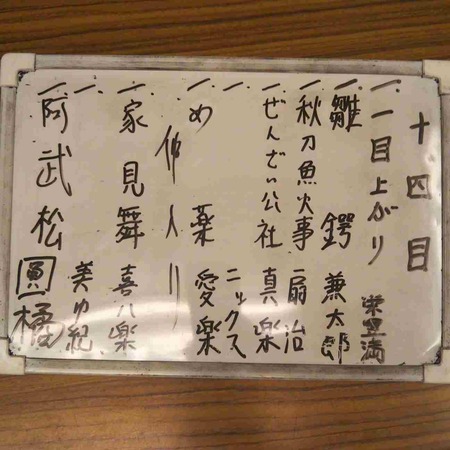 十四目
一、一目上がり 栄豊満
一、雛鍔 兼太郎
一、秋刀魚火事 扇治
一、ぜんざい公社 真楽
一、 ニックス
一、め薬 愛楽
仲入り
一、家見舞 喜八楽
一、 美ゆ紀
一、阿武松 圓橘